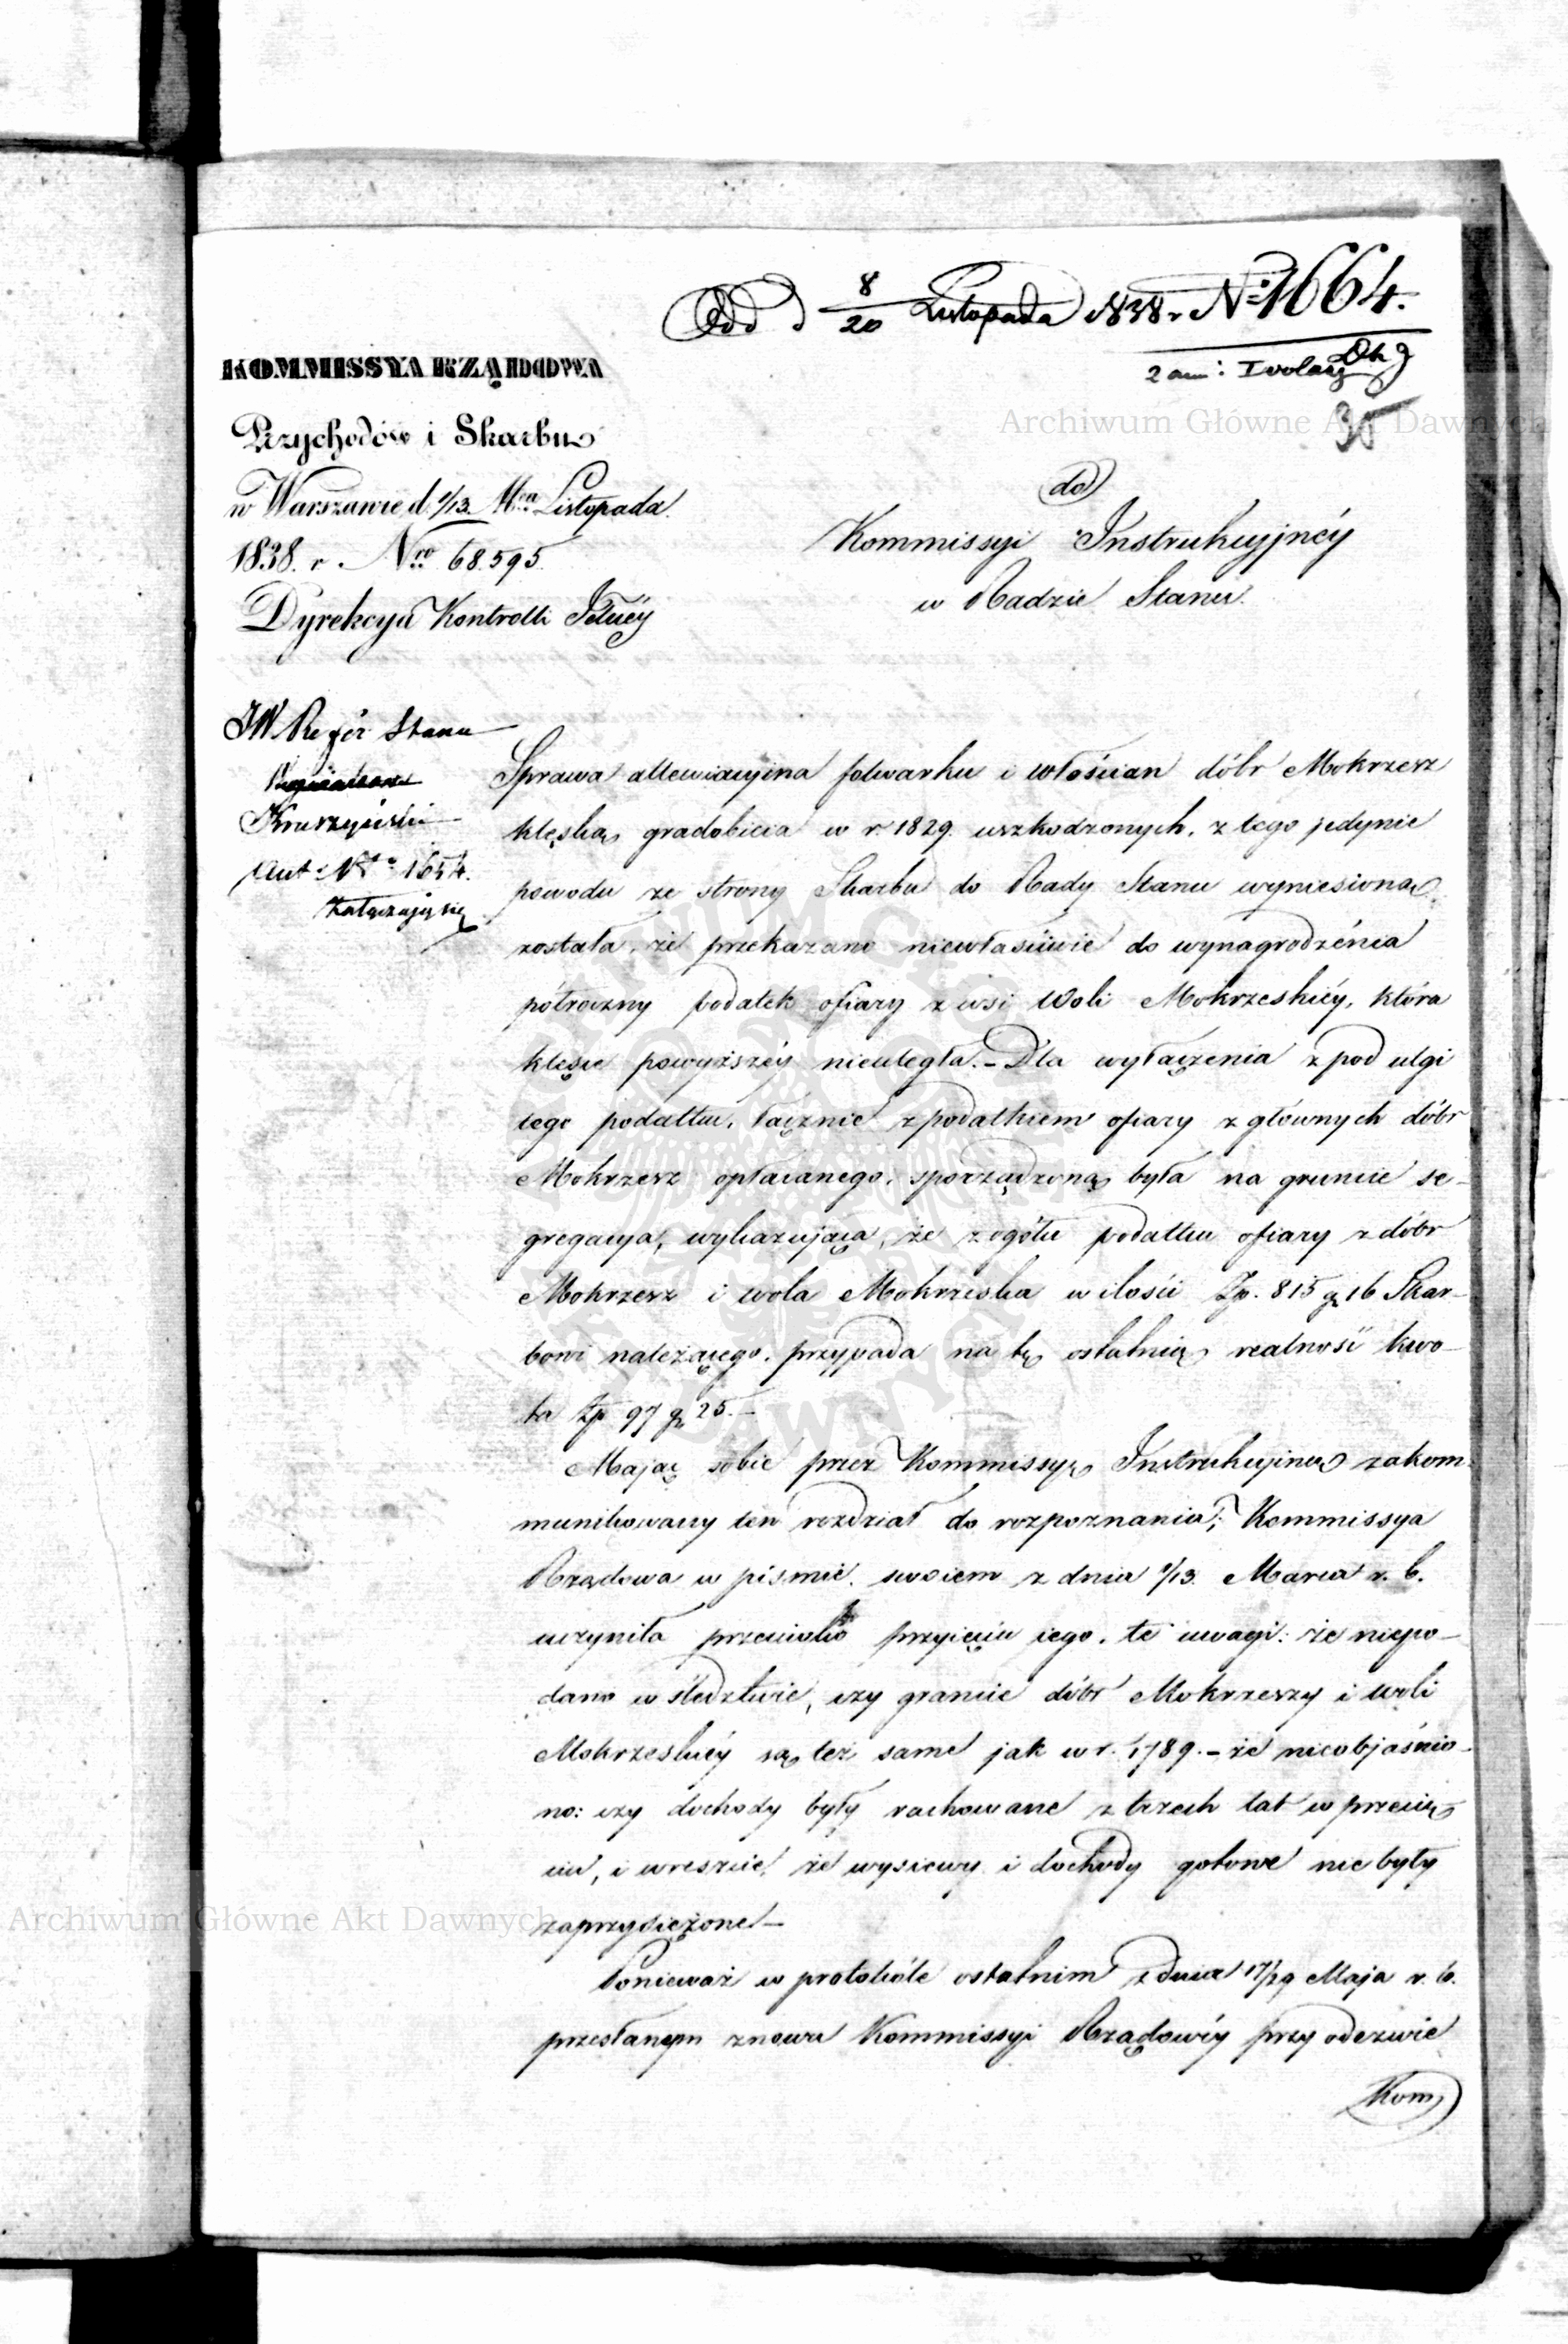 Odd d 8/20 Listopada 1838 r N: 1664.
2 an:
35
KOMMISSYA RZĄDOWA
Przychodów i Skarbu
w Warszawie d. 1/13. Mca Listopada.
1838. r. Nro 68.595.
Dyrekcya Kontrolli
do
Kommissyi Instrukcyjnéy
w Radzie Stanu.
JW Refer Stanu
Kruszyński
Ant: N 1654.
załączają się
Sprawa allewiacyjna folwarku i włościan dóbr Mokrzesz
klęską gradobicia w r. 1829. uszkodzonych, z tego jedynie
powodu ze strony Skarbu do Rady Stanu wyniesioną
została, że przekazano niewłaściwie do wynagrodzénia
półroczny podatek ofiary z wsi Woli Mokrzeskiéy, która
klęsce powyższéy nieuległa. – Dla wyłączenia z pod ulgi
tego podatku, łącznie z podatkiem ofiary z głównych dóbr
Mokrzesz opłacanego, sporządzoną była na gruncie se-
gregacya, wykazująca, że z ogółu podatku ofiary z dóbr
Mokrzesz i wola Mokrzeska w ilości Zp. 815 g 16 Skar-
bowi należącego, przypada na tę ostatnią realność kwo-
ta Zp 97 g 25. –
Mając sobie przez Kommissyą Instrukcyjną zakom-
munikowany ten rozdział do rozpoznania; Kommissya
Rządowa w piśmie swoiem z dnia 1/13. Marca r. b.
uczyniła przeciwko przyjęciu jego, te uwagi: że niepo-
dano w śledztwie, czy granice dóbr Mokrzeszy i Woli
Mokrzeskiéy są też same jak w r. 1789. – że nieobjaśnio-
no: czy dochody były rachowane z trzech lat w przecię-
ciu, i wreszcie, że wysiewy i dochody gotowe nie były
zaprzysiężone –
Ponieważ w protokóle ostatnim z dnia 17/29 Maja r. b.
przesłanym znowu Kommissyi Rządowéy przy odezwie
Kom
Archiwum Główne Akt Dawnych
Archiwum Główne Akt Dawnych